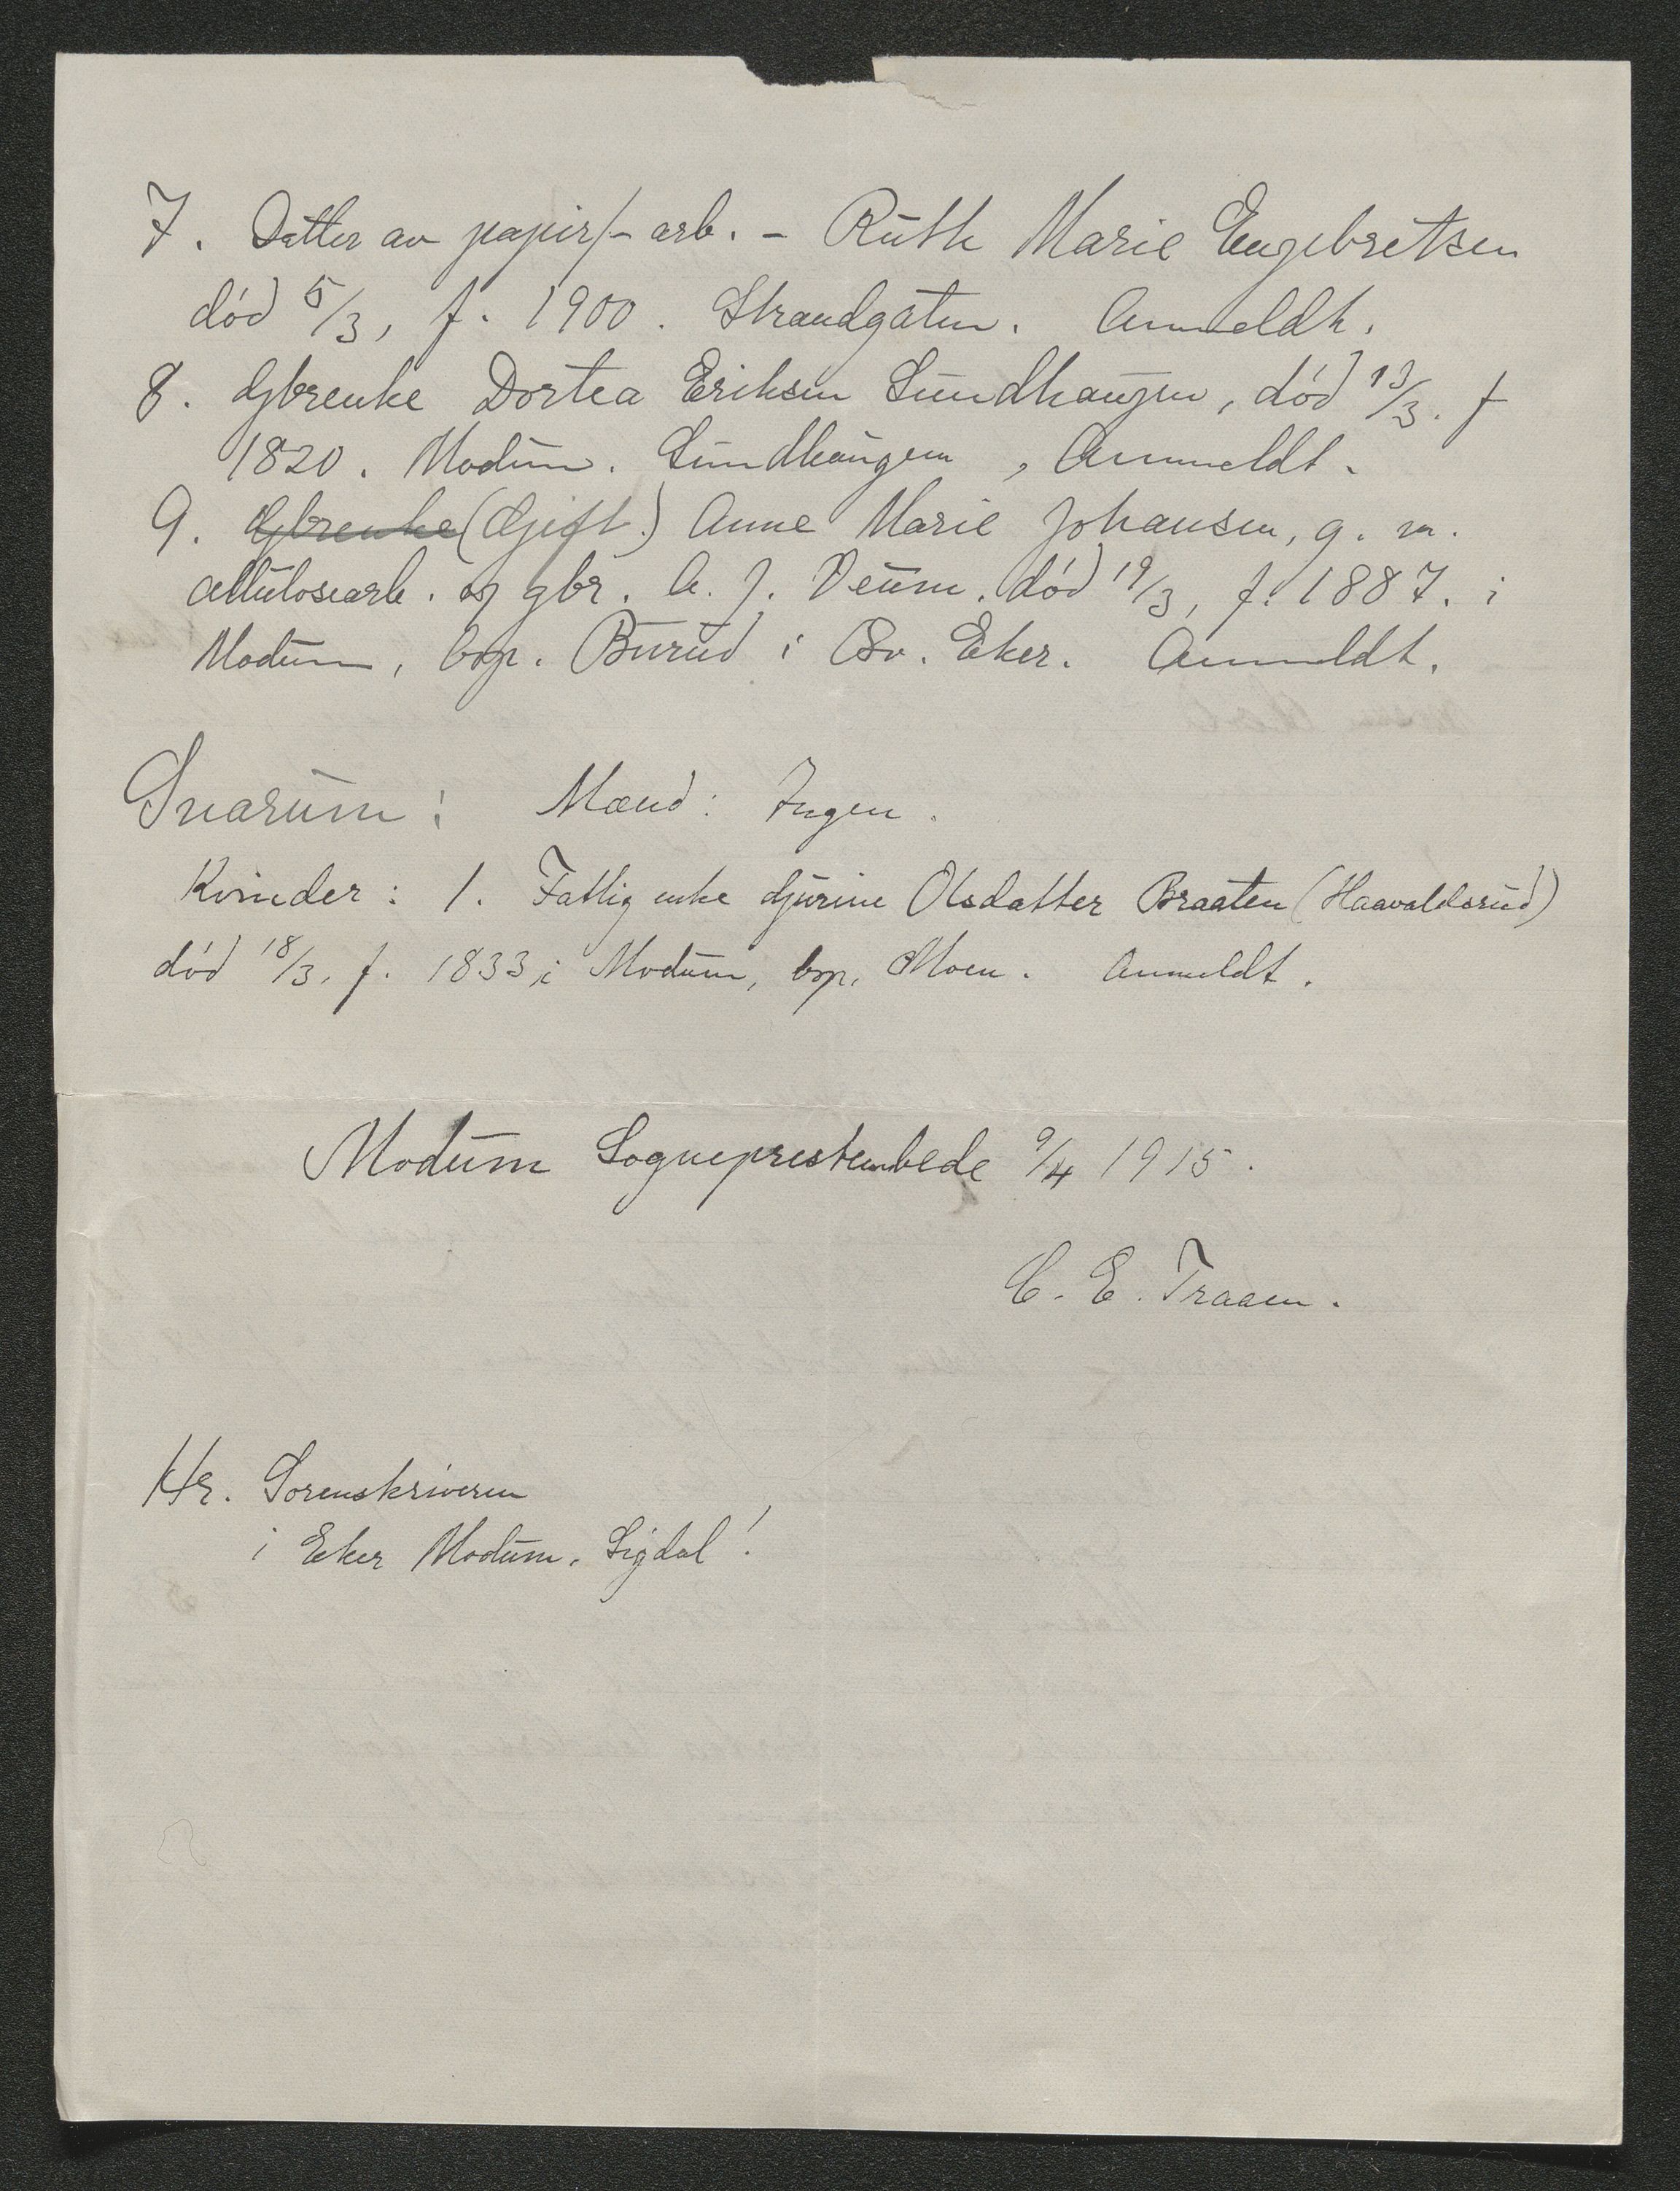 7. Datter av papirf-arb. - Ruth Marie Engebretsen
død 5/3, f. 1900. Strandgaten. Anmeldt.
8. Gbrenke Dortea Eriksen Sundhaugen, død 13/3. f
1820. Modum. Sundhaugen, Anmeldt.
9. Gbrenke (Gift.) Anne Marie Johansen, g. m.
cellulosearb. og gbr. A. J. Deum. død 19/3, f. 1887. i
Modum, bop. Burud i Øv. Eker. Anmeldt.
Snarum: Mænd: Ingen.
Kvinder: 1. Fattig enke Gjurine Olsdatter Braaten (Haavaldsrud)
død 18/3. f. 1833 i Modum, bop. Moen. Anmeldt.
Modum Sogneprestembede 9/4 1915.
C. E. Traaen.
Hr. Sorenskriveren
i Eker Modum, Sigdal!